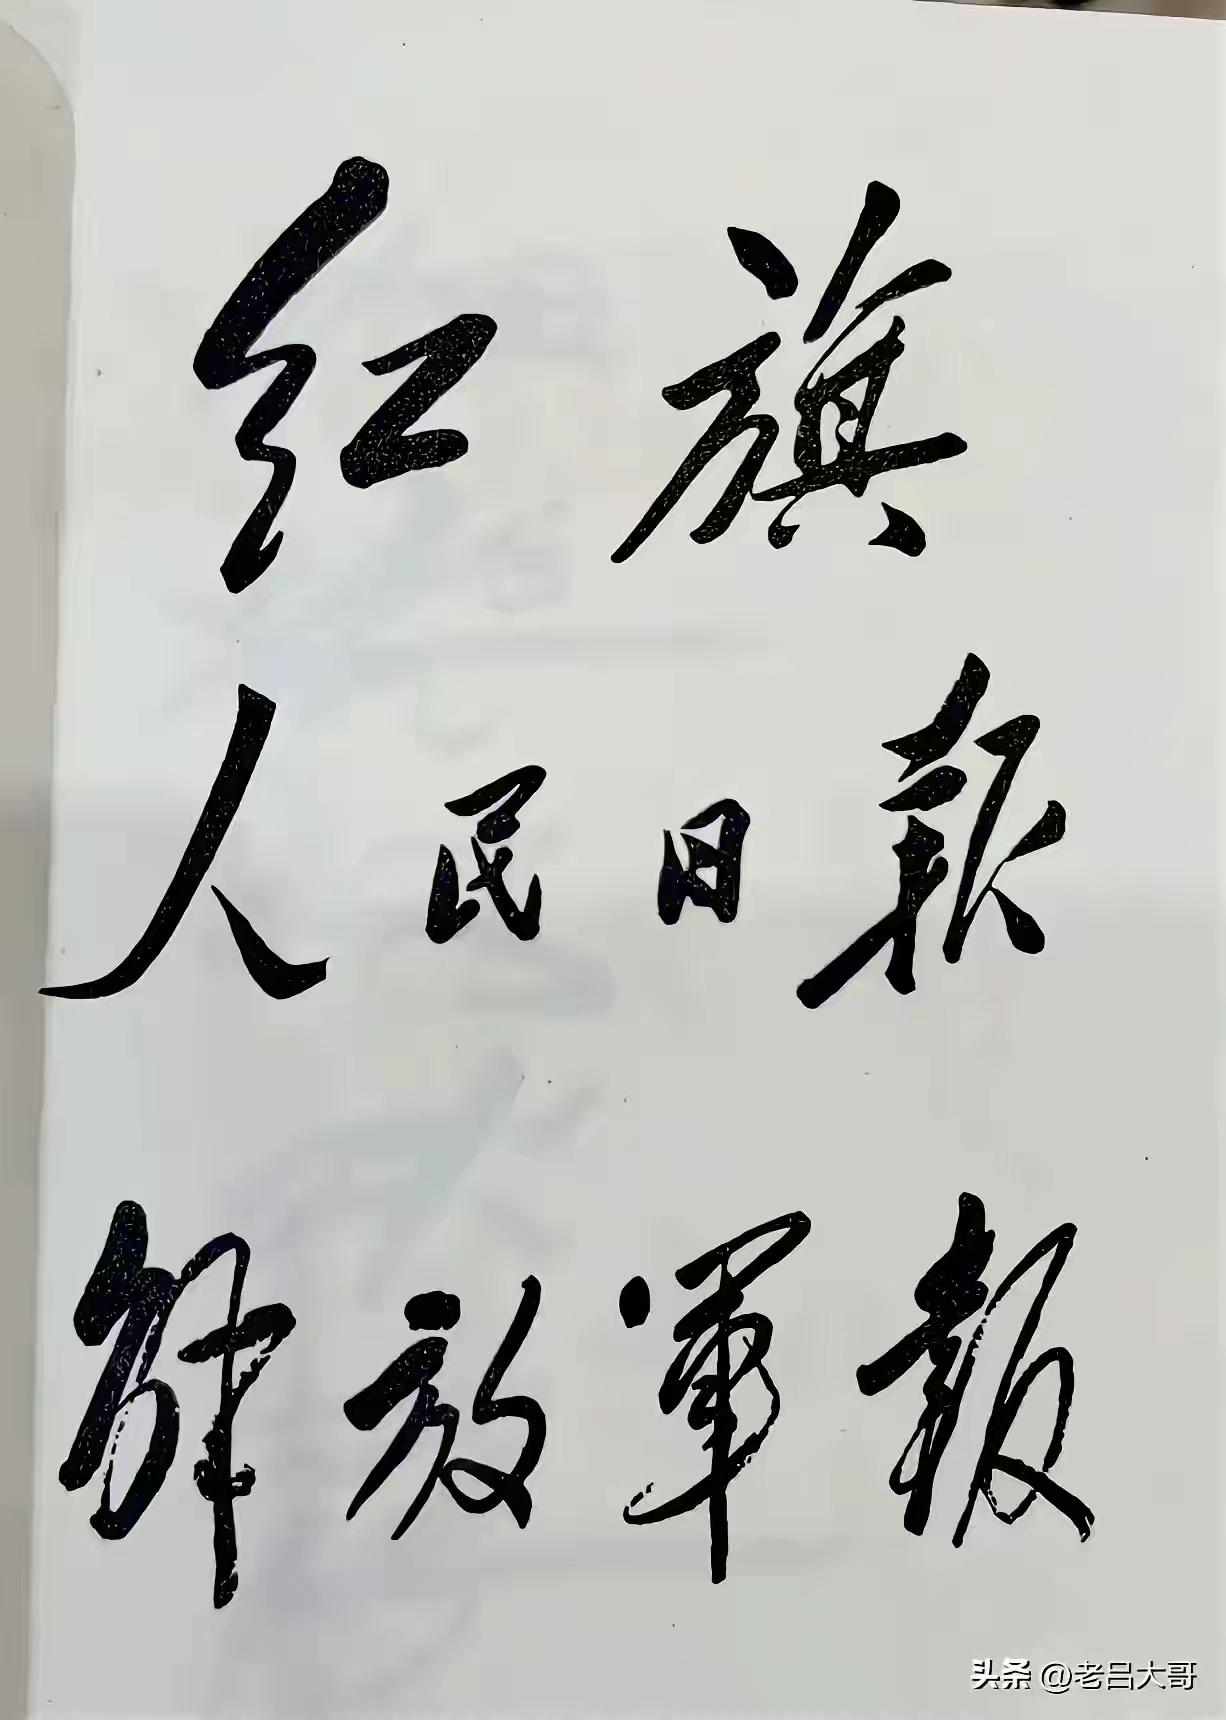 红旗
人民日報
解放軍報
头条 @老吕大哥